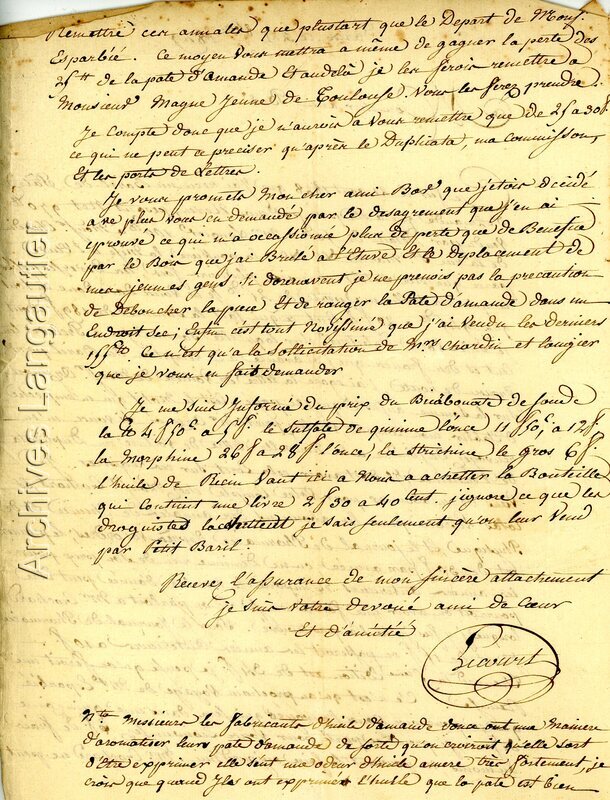 Remettre ces annales que plustart que le Depart de Mons.
Esparbié. Ce moyen vous mettra a même de gagner la perte des
25 tt de la pate d'amande Et audela je les ferois remettre a
Monsieur Magne Jeune de Toulouse. Vous les ferez prendre.
Je Compte donc que je n'aurois a vous remettre que de 25 a 30 f
ce qui ne peut ce preciser qu'après le Duplicata, ma Commission,
Et les ports de Lettres.
Je vous promets Mon cher ami que j'etois decidé
a ne plus vous en demande par le desagrement que j'en ai
eprouvé ce qui m'a occassionné plus de perte que de Benefice
par le Bois que j'ai Brulé a l'Etuve Et le deplacement de
mes jeunes gens. Si dorenavent je ne prenois pas la precaution
de Deboucher la piece Et de ranger la Pate d'amande dans un
Endroit Sec; Enfin c'est tout que j'ai Vendu les derniers
Ce n'est qu'a la Sollicitation de Mrs chardin et laugier
que je vous en fait demander
Je me suis Informé du prix du Bicarbonate de soude
la tt 4 f 50 c a 5 f. le sulfate de quinine l'once 11 f 50 c a 12 f
la Morphine 26 f a 28 f l'once, la Strichine le gros 6 f
l'huile de Ricin Vaut ici a Nous a achetter la Bouteille
qui Contient une livre 2 f 30 a 40 Cent. j'ignore ce que les
droguistes l'achettent je sais seulement qu'on leur Vend
par Petit Baril.
Recevez l'assurance de mon sincère attachement
Je suis Votre devoué ami de Cœur
Et d'amitié
Ricourt
Nta Messieurs les fabricants d'huile d'amande douce ont une Maniere
d'aromatiser leurs pate d'amande de sorte qu'on croiroit qu'elle sort
d'Etre exprimer elle sent une odeur d'huile amere très fortement, je
crois que quand Ils ont exprimer l'huile que la pate est bien
Archives Langautier